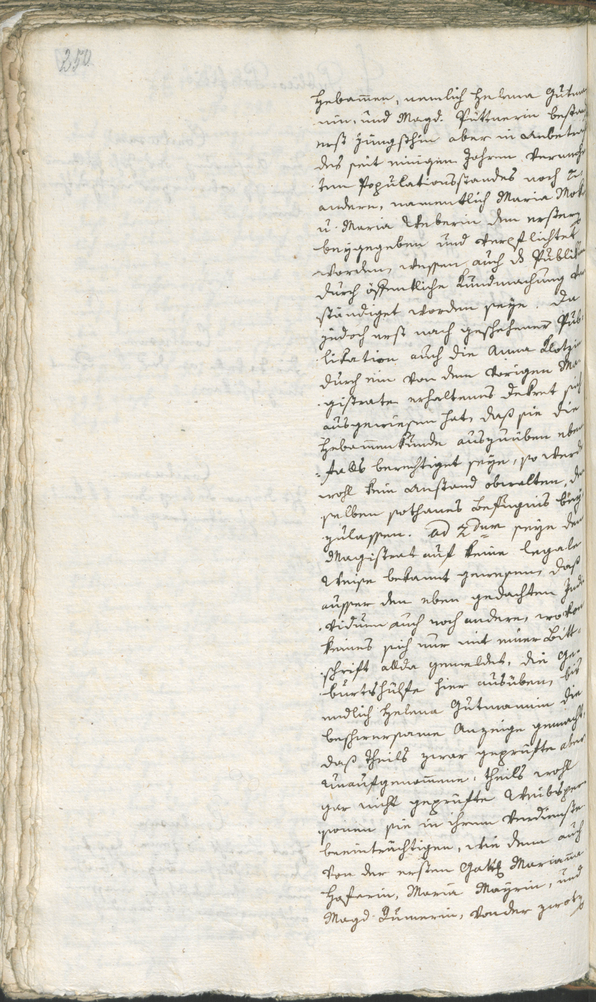 250
Hebammen, nemlich Helena Gutma
nin, und Magd. Püttnerin bestan
erst jüngsthin aber in anbetra
des seit einigen Jahren vermeh
ten Populationsstandes noch 2.
andere, namentlich Maria Mok
u. Maria Weberin den erstern
beygegeben und verpflichtet
worden, wessen auch ds Publik
durch öffentliche Kundmachung ver
ständiget worden seye. Da
jedoch erst nach geschehener Pub
likation auch die Anna Klotzin
durch ein von dem vorigen Ma
gistrate erhaltenes Dekret sich
ausgewiesen hat, daß sie die
Hebammenkunde auszuüben eben
falls berechtiget seye, so werde
wohl kein Anstand obwalten, der
selben sothanes Befugnis bey
zulassen. ad 2dum seye dem
Magistrat auf keine legale
Weise bekannt gewesen, daß
ausser den eben gedachten Indi
viduen auch noch andere, wovon
keines sich nur mit einer Bitt
schrift allda gemeldet, die Ge
burtshülfe hier ausüben, bis
endlich Helena Gutmannin die
beschwersame Anzeige gemacht,
daß theils zwar geprüfte aber
unaufgenommene, theils wohl
gar nicht geprüfte Weibsper
sonen sie in ihrem Verdienste
beeinträchtigen, wie denn auch
von der ersten Gattg Marianna
Haferin, Maria Mayrin, und
Magd. von der zweite